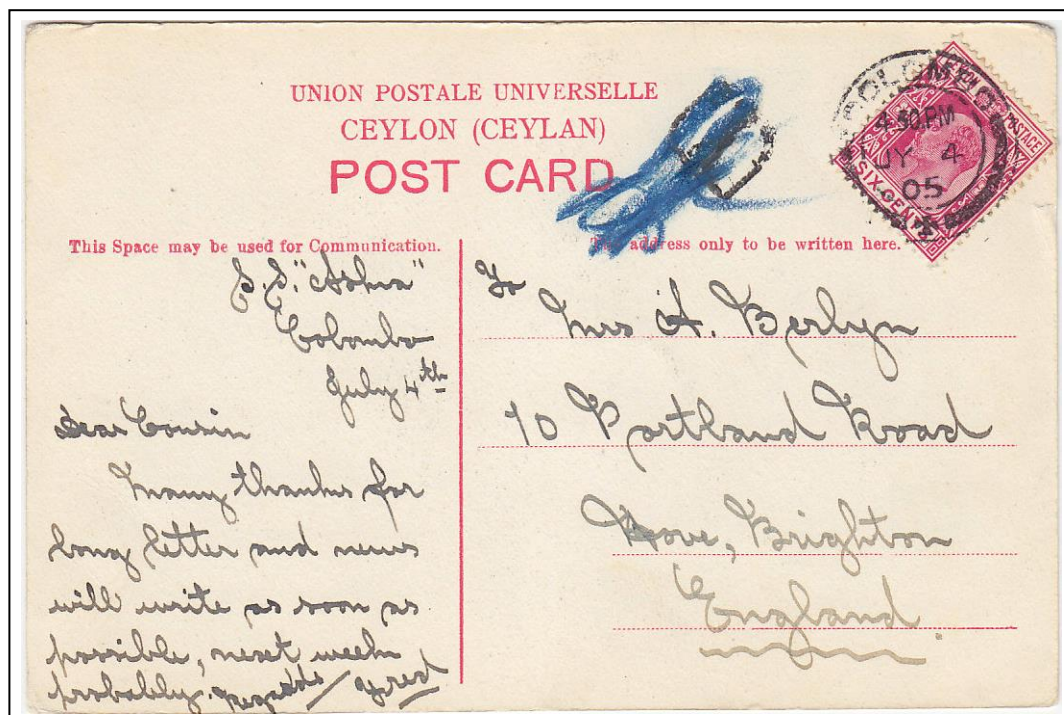 UNION POSTALE UNIVERSELLE
CEYLON (CEYLAN)
POST CARD
COLOMBO
4.30 PM
JY 4
05
POSTAGE
SIX CENTS
This Space may be used for Communication.
S.S.
Colombo
July 4th
Dear Cousin
Many thanks for
long letter and news
will write as soon as
possible, next week
probably. Regards Fred
The address only to be written here.
To
Mrs A. Berlyn
70 Portland Road
Hove, Brighton
England